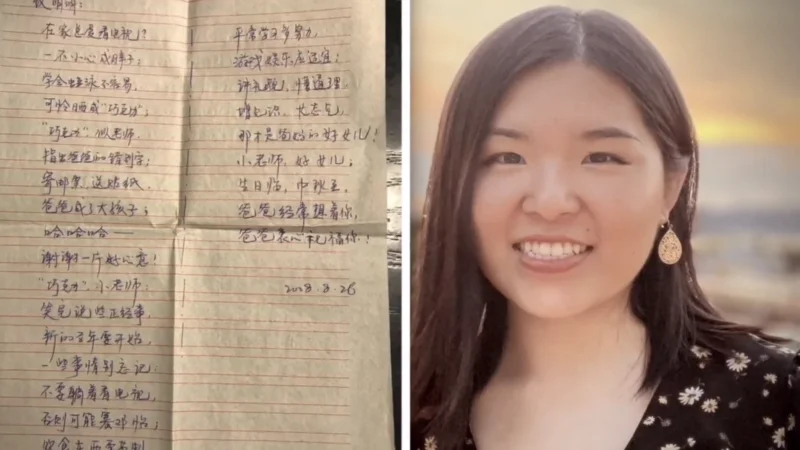 在家总是看电视?
一不小心成胖子;
学会游泳不容易,
可怜晒成“巧克力”;
“巧克力”似老师,
指出爸爸的错别字;
寄邮票,送贴纸,
爸爸成了大孩子;
哈哈哈——
谢谢一片好心意!
“巧克力”小老师:
笑完说些正经事,
新的学年要开始,
一些事情别忘记.
不要躺着看电视,
否则可能
平常学习多努力,
游戏娱乐应适宜;
讲礼貌,懂道理,
增知识,长志气,
那才是爸妈的好女儿!
小老师,好女儿;
生日临,中秋至,
爸爸经常想着你,
爸爸衷心祝福你!
2008.8.26